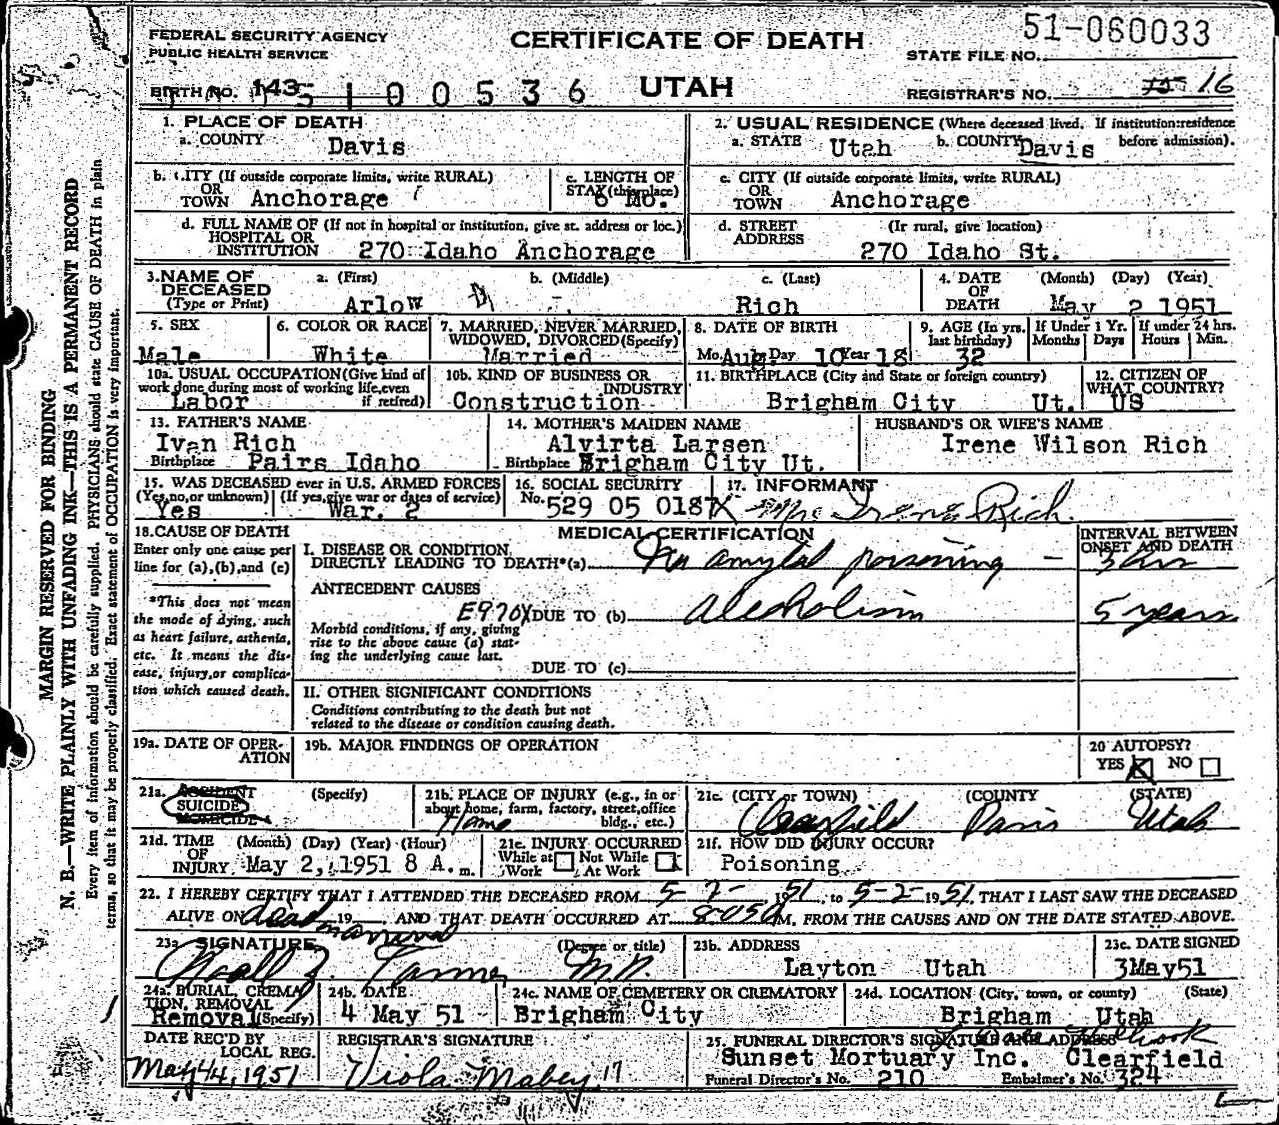 51-060033
FEDERAL SECURITY AGENCY
PUBLIC HEALTH SERVICE
CERTIFICATE OF DEATH
STATE FILE NO.
BIRTH NO. 143 5 1 0 0 5 3 6
UTAH
REGISTRAR'S NO. 16
1. PLACE OF DEATH
a. COUNTY Davis
2. USUAL RESIDENCE (Where deceased lived. If institution: residence before admission).
a. STATE Utah b. COUNTY Davis
b. CITY (If outside corporate limits, write RURAL) OR TOWN Anchorage
c. LENGTH OF STAY (this place) 6 Mo.
c. CITY (If outside corporate limits, write RURAL) OR TOWN Anchorage
d. FULL NAME OF (If not in hospital or institution, give st. address or loc.) HOSPITAL OR INSTITUTION 270 Idaho Anchorage
d. STREET ADDRESS (If rural, give location) 270 Idaho St.
3. NAME OF DECEASED (Type or Print) a. (First) Arlow b. (Middle) - c. (Last) Rich
4. DATE OF DEATH (Month) (Day) (Year) May 2 1951
5. SEX Male
6. COLOR OR RACE White
7. MARRIED, NEVER MARRIED, WIDOWED, DIVORCED (Specify) Married
8. DATE OF BIRTH Mo. Aug. Day 10 Year 18
9. AGE (In yrs. last birthday) 32
If Under 1 Yr. Months Days
If under 24 hrs. Hours Min.
10a. USUAL OCCUPATION (Give kind of work done during most of working life, even if retired) Labor
10b. KIND OF BUSINESS OR INDUSTRY Construction
11. BIRTHPLACE (City and State or foreign country) Brigham City Ut.
12. CITIZEN OF WHAT COUNTRY? US
13. FATHER'S NAME Ivan Rich
Birthplace Pairs Idaho
14. MOTHER'S MAIDEN NAME Alvirta Larsen
Birthplace Brigham City Ut.
HUSBAND'S OR WIFE'S NAME Irene Wilson Rich
15. WAS DECEASED ever in U.S. ARMED FORCES (Yes, no, or unknown) (If yes, give war or dates of service) Yes War. 2
16. SOCIAL SECURITY No. 529 05 0187
17. INFORMANT Irene Rich
18. CAUSE OF DEATH
Enter only one cause per line for (a), (b), and (c)
*This does not mean the mode of dying, such as heart failure, asthenia, etc. It means the disease, injury, or complication which caused death.
MEDICAL CERTIFICATION
INTERVAL BETWEEN ONSET AND DEATH
I. DISEASE OR CONDITION DIRECTLY LEADING TO DEATH*(a) Na amytal poisoning - 3 hrs
ANTECEDENT CAUSES
E970X DUE TO (b) Alcoholism 5 years
Morbid conditions, if any, giving rise to the above cause (a) stating the underlying cause last.
DUE TO (c)
II. OTHER SIGNIFICANT CONDITIONS
Conditions contributing to the death but not related to the disease or condition causing death.
19a. DATE OF OPERATION
19b. MAJOR FINDINGS OF OPERATION
20 AUTOPSY? YES X NO
21a. ACCIDENT SUICIDE HOMICIDE (Specify)
21b. PLACE OF INJURY (e.g., in or about home, farm, factory, street, office bldg., etc.) Home
21c. (CITY or TOWN) (COUNTY (STATE) Clearfield Davis Utah
21d. TIME OF INJURY (Month) (Day) (Year) (Hour) May 2, 1951 8 A. m.
21e. INJURY OCCURRED While at Work Not While At Work X
21f. HOW DID INJURY OCCUR? Poisoning
22. I HEREBY CERTIFY THAT I ATTENDED THE DECEASED FROM 5-2- 1951, to 5-2-1951, THAT I LAST SAW THE DECEASED
ALIVE ON dead on arrival 19 AND THAT DEATH OCCURRED AT 8:05 a M, FROM THE CAUSES AND ON THE DATE STATED ABOVE.
23a SIGNATURE (Degree or title) M.D.
23b. ADDRESS Layton Utah
23c. DATE SIGNED 3May51
24a. BURIAL, CREMATION, REMOVAL (Specify) Removal
24b. DATE 4 May 51
24c. NAME OF CEMETERY OR CREMATORY Brigham City
24d. LOCATION (City, town, or county) (State) Brigham Utah
DATE REC'D BY LOCAL REG. May 4, 1951
REGISTRAR'S SIGNATURE Viola Mabey
25. FUNERAL DIRECTOR'S SIGNATURE AND ADDRESS
Sunset Mortuary Inc. Clearfield
Funeral Director's No. 210 Embalmer's No. 324
MARGIN RESERVED FOR BINDING
N. B.—WRITE PLAINLY WITH UNFADING INK—THIS IS A PERMANENT RECORD
Every item of information should be carefully supplied. PHYSICIANS should state CAUSE OF DEATH in plain
terms, so that it may be properly classified. Exact statement of OCCUPATION is very important.